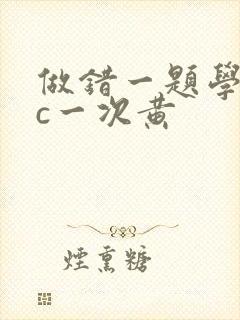 做錯一題學
c一次黃
煙熏糖